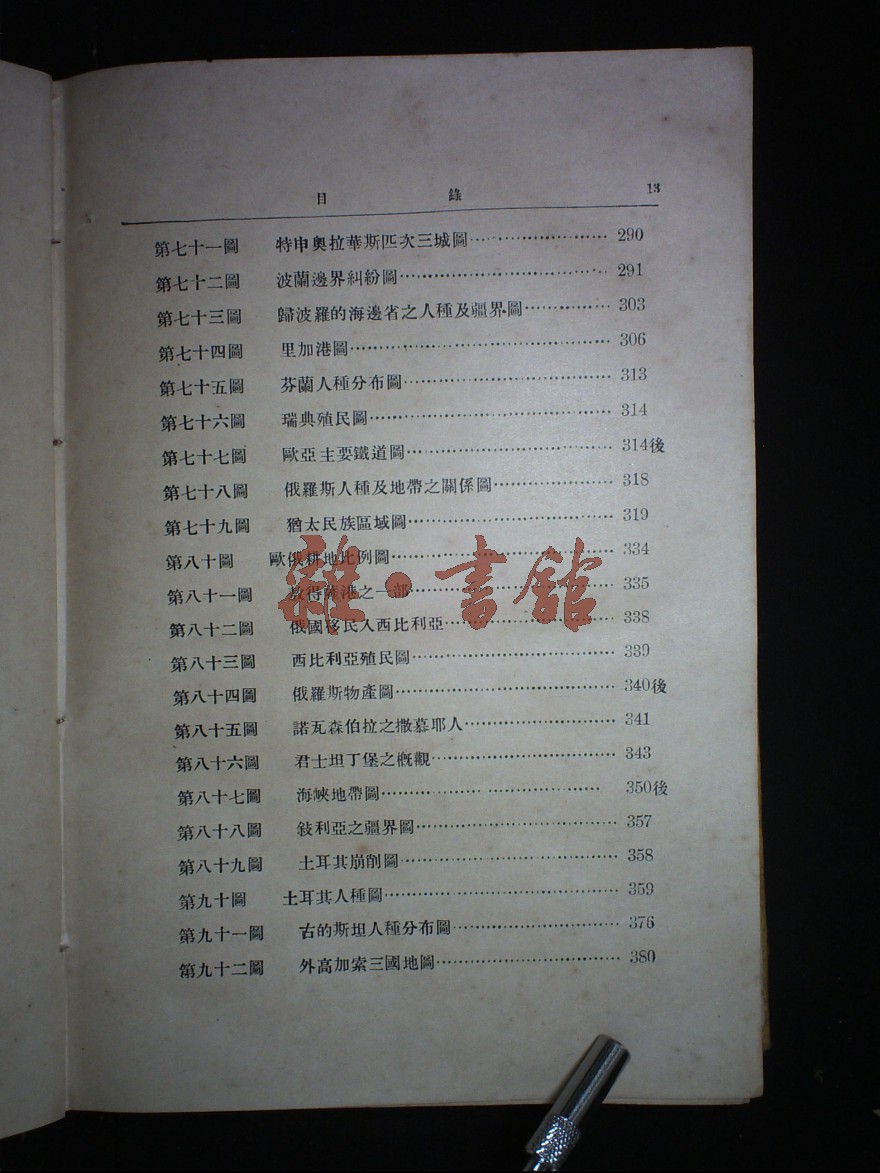 目錄 13
第七十一圖 特申奧拉華斯匹次三城圖 290
第七十二圖 波蘭邊界糾紛圖 291
第七十三圖 歸波羅的海邊省之人種及疆界圖 303
第七十四圖 里加港圖 306
第七十五圖 芬蘭人種分布圖 313
第七十六圖 瑞典殖民圖 314
第七十七圖 歐亞主要鐵道圖 314後
第七十八圖 俄羅斯人種及地帶之關係圖 318
第七十九圖 猶太民族區域圖 319
第八十圖 歐俄耕地比例圖 334
第八十一圖 敖得薩港之一部 335
第八十二圖 俄國移民入西比利亞 338
第八十三圖 西比利亞殖民圖 339
第八十四圖 俄羅斯物產圖 340後
第八十五圖 諾瓦森伯拉之撒慕耶人 341
第八十六圖 君士坦丁堡之概觀 343
第八十七圖 海峽地帶圖 350後
第八十八圖 敍利亞之疆界圖 357
第八十九圖 土耳其崩削圖 358
第九十圖 土耳其人種圖 359
第九十一圖 古的斯坦人種分布圖 376
第九十二圖 外高加索三國地圖 380
雜·書館